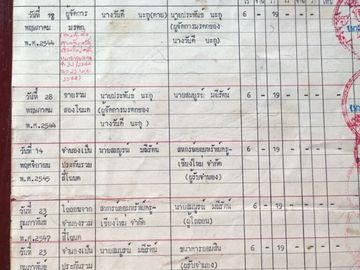 วันที่ 18 ผู้จัดการ นางวันดี นะฤ(ตาย) นายประพันธ์ นะฤ 6 - 19 - -
พฤษภาคม มรดก (ผู้จัดการมรดกของ
พ.ศ.2544 นางวันดี นะฤ)
วันที่ 28 ขายรวม นายประพันธ์ นะฤ นายสมบูรณ์ มณีรัตน์ 6 - 19 - -
พฤษภาคม สองโฉนด (ผู้จัดการมรดกของ
พ.ศ.2544 นางวันดี นะฤ)
วันที่ 14 จำนองเป็น นายสมบูรณ์ มณีรัตน์ สหกรณ์ออมทรัพย์ครู- 6 - 19 - -
พฤศจิกายน ประกันรวม เชียงใหม่ จำกัด
พ.ศ.2545 สี่โฉนด (ผู้รับจำนอง)
วันที่ 23 ไถ่ถอนจาก สหกรณ์ออมทรัพย์ครู- นายสมบูรณ์ มณีรัตน์ 6 - 19 - -
กุมภาพันธ์ จำนอง เชียงใหม่ จำกัด (ผู้ไถ่ถอน)
พ.ศ.2547 สี่โฉนด
วันที่ 23 จำนองเป็น นายสมบูรณ์ มณีรัตน์ ธนาคารออมสิน 6 - 19 - -
กุมภาพันธ์ ประกันรวม (ผู้รับจำนอง)